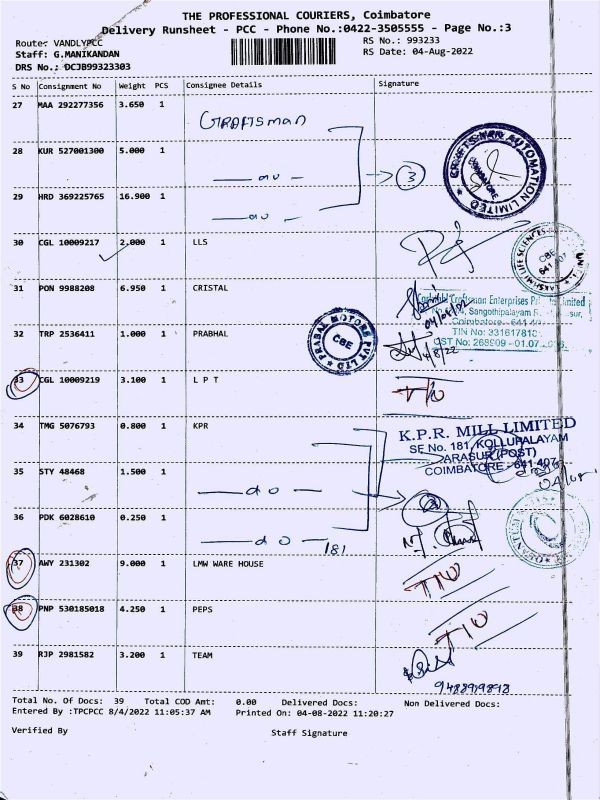 THE PROFESSIONAL COURIERS, Coimbatore
Delivery Runsheet - PCC - Phone No.:0422-3505555 - Page No.:3
Route: VANDLYPCC
RS No.: 993233
Staff: G.MANIKANDAN
RS Date: 04-Aug-2022
DRS No.: DCJB99323303
S No Consignment No Weight PCS Consignee Details Signature
27 MAA 292277356 3.650 1
CRAFTSMAN
28 KUR 527001300 5.000 1
— do —
3
CRAFTSMAN AUTOMATION LIMITED
COIMBATORE
29 HRD 369225765 16.900 1
— do —
30 CGL 10009217 2.000 1 LLS
LAKSHMI LIFE SCIENCES
CBE
641 407
31 PON 9988208 6.950 1 CRISTAL
04/08/22
Craftsman Enterprises
Sangothipalayam
Coimbatore
TIN No: 33161781
CST No: 268909 - 01.07
32 TRP 2536411 1.000 1 PRABHAL
PRABAL MOTORS PVT LTD
CBE
4/8/22
33 CGL 10009219 3.100 1 L P T
T/O
34 TMG 5076793 0.800 1 KPR
K.P.R. MILL LIMITED
SF No. 181, KOLLUPALAYAM
ARASUR (POST)
COIMBATORE - 641 407
35 STY 48468 1.500 1
— do —
36 PDK 6028610 0.250 1
— do —
181
37 AWY 231302 9.000 1 LMW WARE HOUSE
T/O
38 PNP 530185018 4.250 1 PEPS
T/O
39 RJP 2981582 3.200 1 TEAM
Total No. Of Docs: 39 Total COD Amt: 0.00 Delivered Docs: Non Delivered Docs:
Entered By :TPCPCC 8/4/2022 11:05:37 AM Printed On: 04-08-2022 11:20:27
Verified By Staff Signature